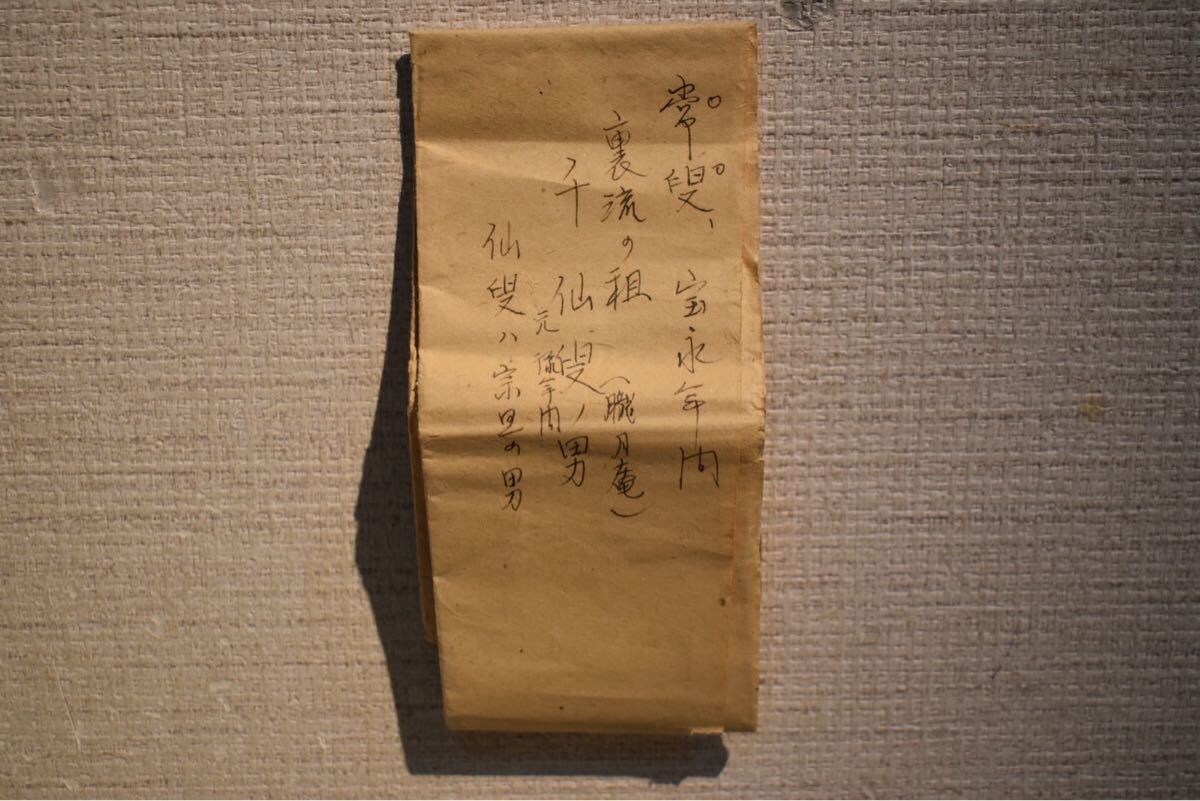 常叟、宝永年間
裏流の祖(朧月庵)
千 仙叟ノ男
元禄年間
仙叟ハ宗旦の男